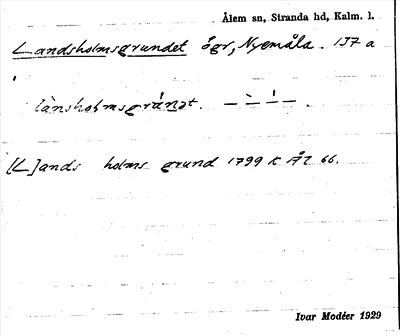 Ålem sn, Stranda hd, Kalm. l.
Landsholmsgrundet ögr, Nyemåla. 1J7 a
lànshòlmsgrúnət. – ̀ – ́ – .
[L]ands holms grund 1799 K Ål 66.
Ivar Modéer 1929